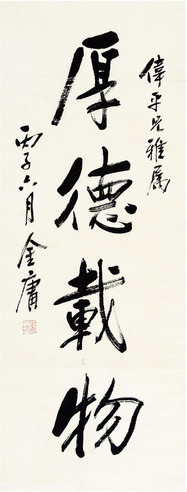 偉平兄雅属
厚德載物
丙子六月金庸